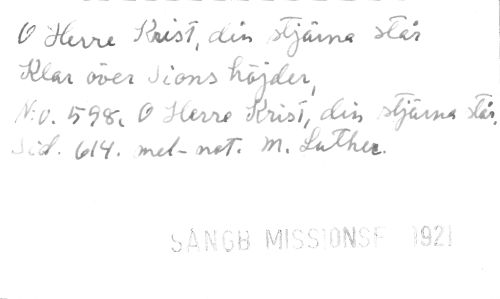 O Herre Krist, din stjärna står
Klar över Sions höjder,
N:o. 598. O Herre Krist, din stjärna står.
Sid. 614. mel-not. M. Luther.
SÅNGB MISSIONSF 1921